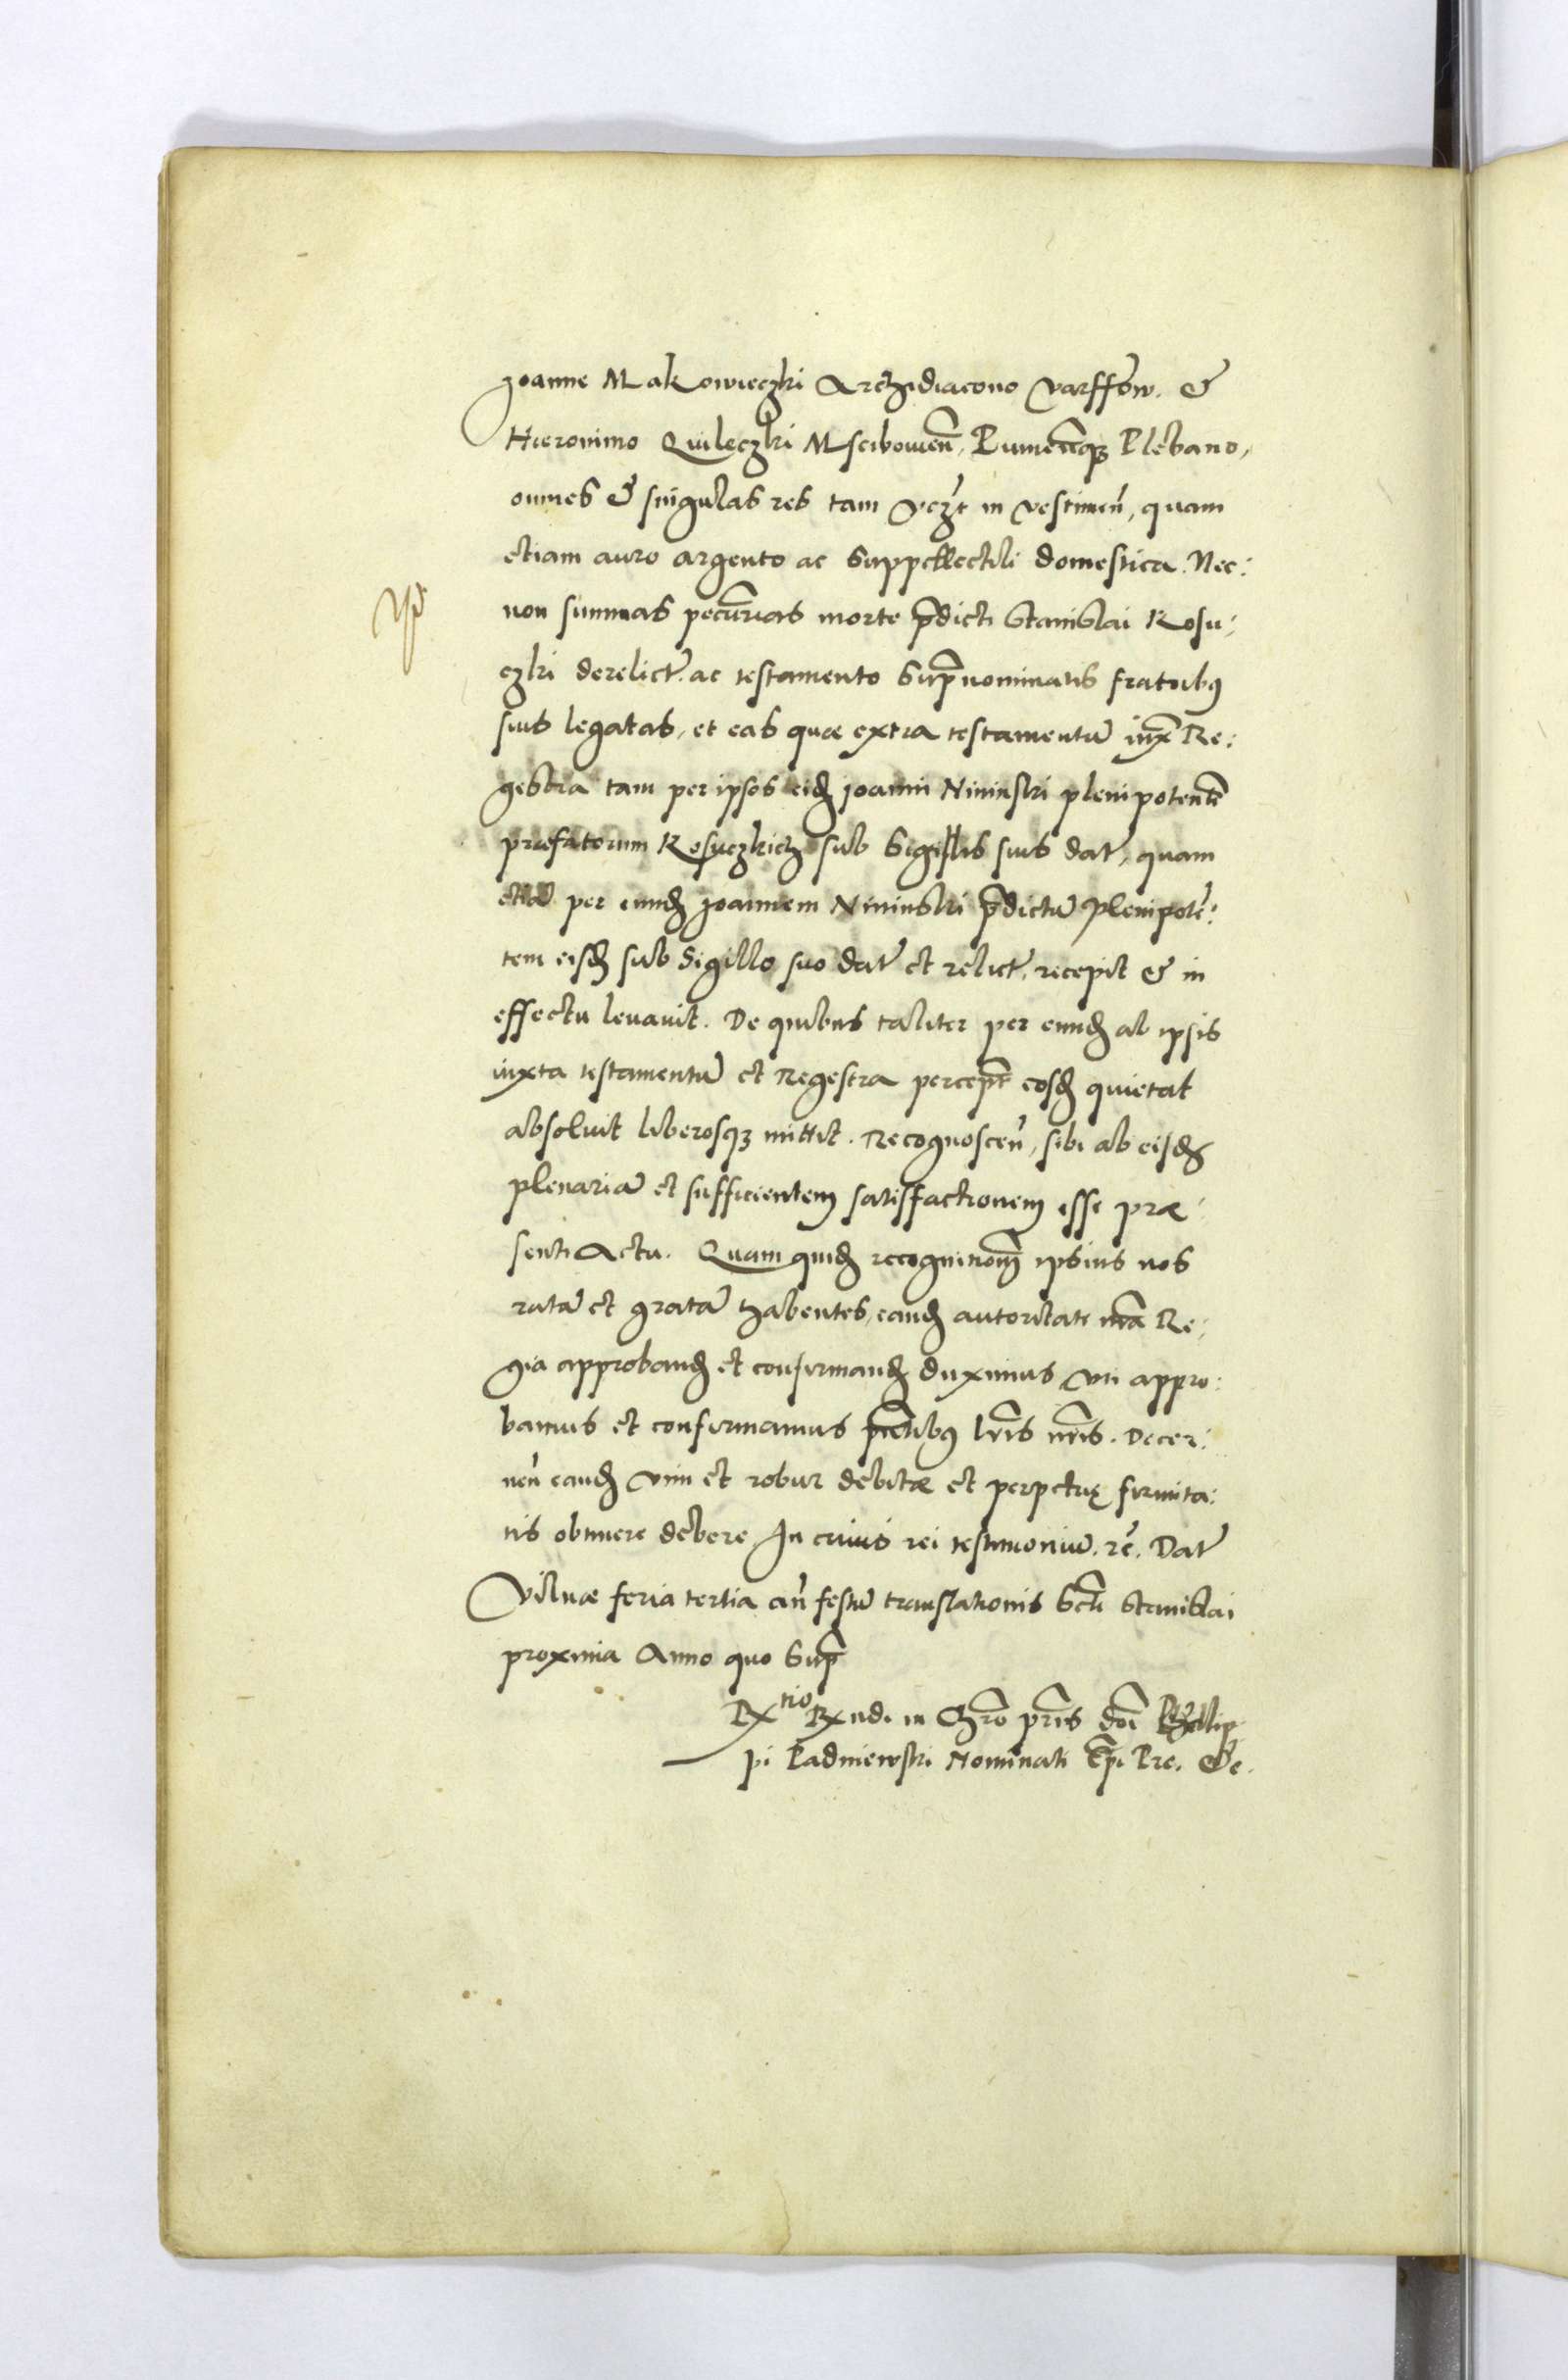 Joanne Makowieczki Archidiacono Varssow. &
Hieronimo Quileczki Mscibowien̄, Lumen̄q3 Plebano,
omnes & singulas res tam vczt in vestimen̄, quam
etiam auro argento ac suppellectili domestica. Nec:
non summas pecun̄ias morte p̄dicti Stanislai Kosu:
czki derelict. ac testamento sup̄nominatis fratribus
suis legatas, et eas quae extra testamentū iux̄ Re:
gestra tam per ipsos eid Joanni Nininski plenipoten̄t
praefatorum Kosuczkich sub sigillis suis dat, quam
etiā per eund Joannem Nininski p̄dictū plenipotē:
tem eisd sub Sigillo suo dat et relict. recepit & in
effectu levavit. De quibus taliter per eund ab ipsis
iuxta testamentū et Regestra percept eosd quietat
absoluit liberosq3 mittit. Recognoscen̄, sibi ab eisd
plenariā et sufficientem satisfactionem esse prae:
senti Actu. Quam quid recognition̄m ipsius nos
ratā et gratā habentes, eand autoritate nr̄a Re:
gia approband et confirmand duximus Uti appro:
bamus et confirmamus pn̄tibus lr̄is nr̄is. Decer:
nen̄ eand vim et robur debitae et perpetuę firmita:
tis obtinere debere In cuius rei testimoniū. rē. Dat
Vilnae feria tertia an̄ festū translationis Scti Stanislai
proxima Anno quo Sup̄
Rxtio Rxndi in Chr̄o pr̄is dn̄i Phillip
pi Padniewski Nominati Ep̄i Pre. &c.